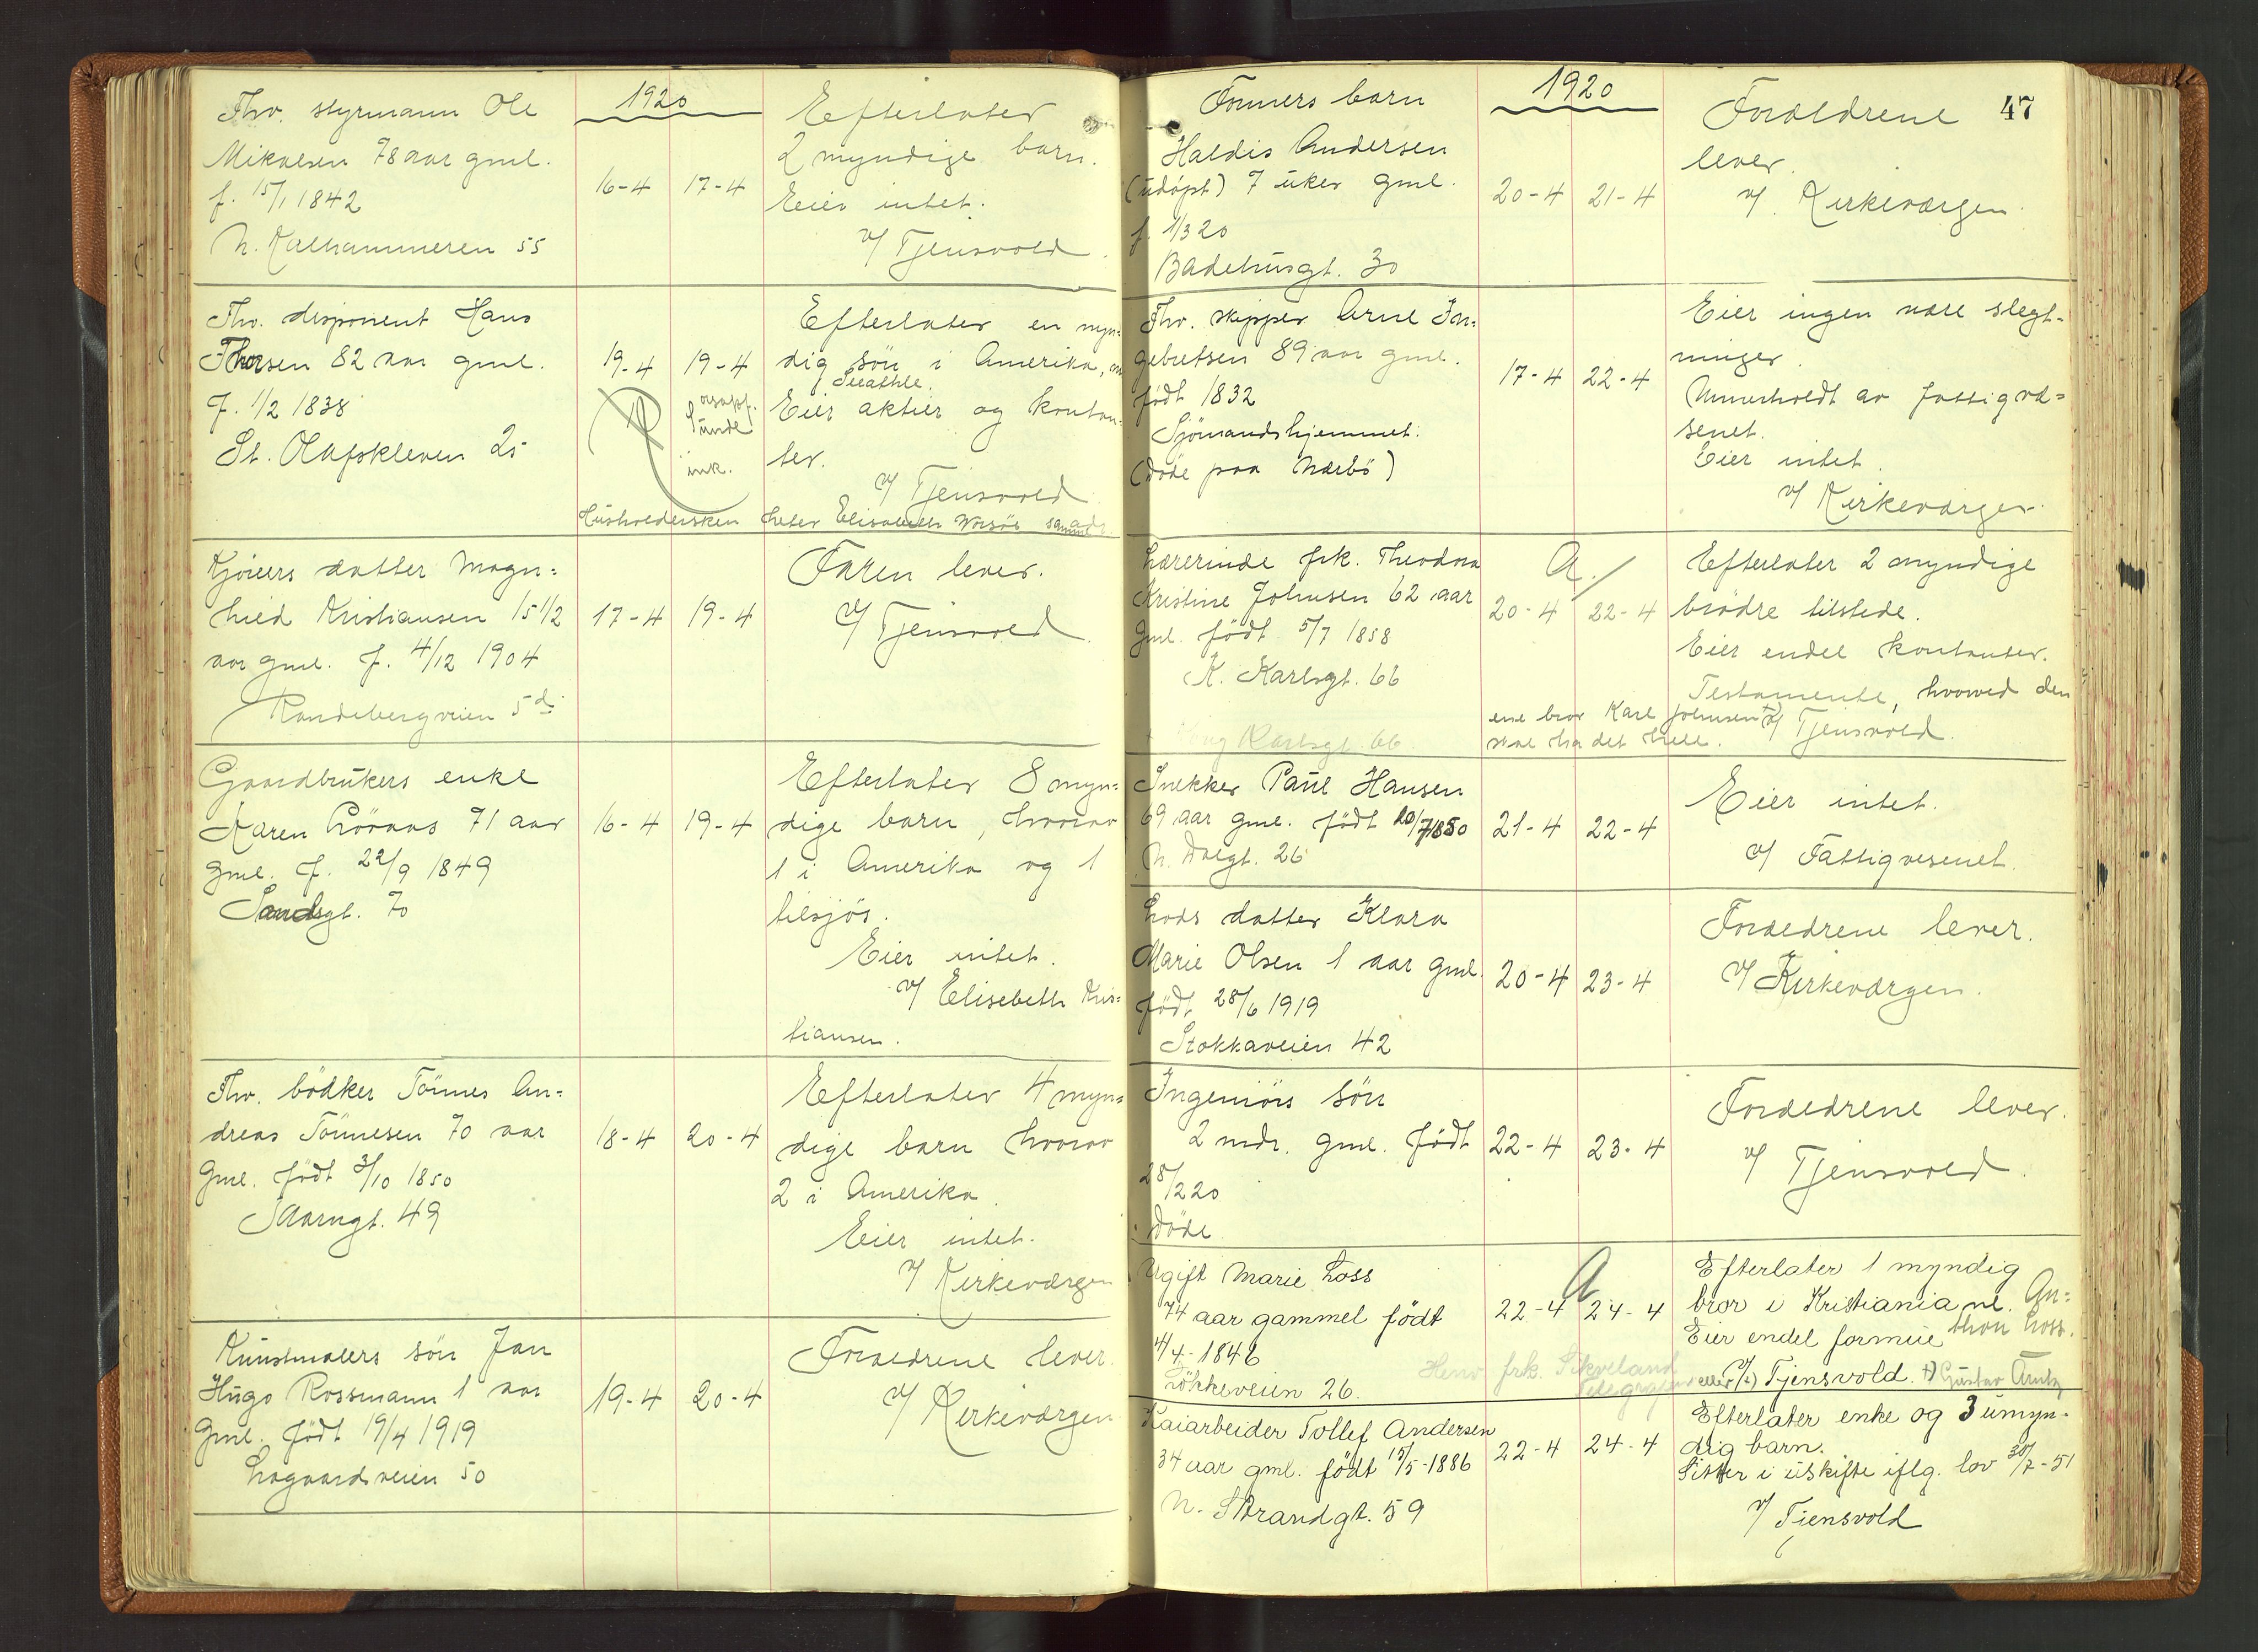 1920
Fhv. styrmann Ole
Mikalsen 78 aar gml.
f. 15/1 1842
N. Kalhammeren 55
16-4 17-4
Efterlater
2 myndige barn.
Eier intet.
v/ Tjensvold.
Fhv. disponent Hans
Thorsen 82 aar gml.
f. 1/2 1838
St. Olafskleven 25
19-4 19-4
ink.
Efterlater en myn-
dig søn i Amerika,
Seeathle.
Eier aktier og kontan-
ter.
v/ Tjensvold
Husholdersken heter Elisabeth
Kjørers datter Magn-
hild Kristiansen 15 1/2
aar gml. f. 4/12 1904
Randebergveien 5d
17-4 19-4
Faren lever.
v/ Tjensvold.
Gaardbrukers enke
Karen 71 aar
gml. f. 22/9 1849
Sandsgt. 70
16-4 19-4
Efterlater 8 myn-
dige barn, hvorav
1 i Amerika og 1
tilsjøs.
Eier intet.
v/ Elisebeth Kris-
tiansen.
Fhv. bødker Tønnes An-
dreas Tønnesen 70 aar
gml. født 3/10 1850
49
18-4 20-4
Efterlater 4 myn-
dige barn hvorav
2 i Amerika.
Eier intet.
v/ Kirkeværgen
Kunstmalers søn Jan
Hugo Rossmann 1 aar
gml. født 19/4 1919
Lagaardsveien 50
19-4 20-4
Foreldrene lever.
v/ Kirkeværgen
47
1920
Formers barn
Haldis Andersen
(udøpt) 7 uker gml.
f. 1/3 20
Badehusgt. 30
20-4 21-4
Foreldrene
lever.
v/ Kirkeværgen.
Fhv. skipper Arne In-
gebretsen 89 aar gml.
født 1832
Sjømandshjemmet.
(Døde paa Nærbø)
17-4 22-4
Eier ingen nære slegt-
ninger.
Unnerholdt av fattigvæ-
senet.
Eier intet.
v/ Kirkeværgen.
Lærerinde frk. Theodora
Kristine Johnsen 62 aar
gml. født 5/7 1858
K. Karlsgt. 66
A.
20-4 22-4
Efterlater 2 myndige
brødre tilstede.
Eier endel kontanter.
Testamente, hvorved den
ene bror Karl Johnsen
skal ha det hele.
v/ Tjensvold.
Karlsgt. 66
Snekker Paul Hansen
69 aar gml. født 20/7 1850
N. Dalgt. 26
21-4 22-4
Eier intet.
v/ Fattigvesenet.
Lods datter Klara
Marie Olsen 1 aar gml.
født 28/6 1919
Stokkaveien 42
20-4 23-4
Foreldrene lever.
v/ Kirkeværgen.
Ingeniørs søn
2 mdr. gml. født
28/2 20
Døde
22-4 23-4
Foreldrene lever.
v/ Tjensvold.
Ugift Marie Loss
74 aar gammel født
4/4-1846
Løkkeveien 26.
A
22-4 24-4
Efterlater 1 myndig
bror i Kristiania nl. An-
thon Loss.
Eier endel formue
eller v/ Tjensvold. +) Gustav Arntz
Kaiarbeider Tollef Andersen
34 aar gml. født 15/5-1886
N. Strandgt. 59
22-4 24-4
Efterlater enke og 3 umyn-
dig barn.
Sitter i uskifte iflg. lov 30/7-51
v/ Tjensvold